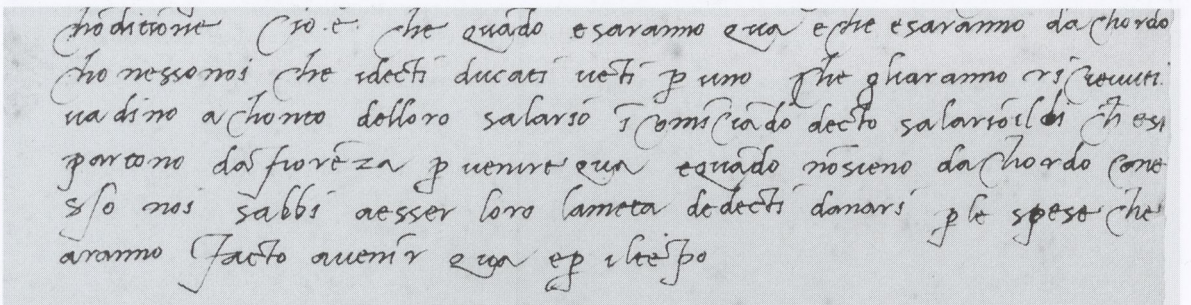 chōditione cio.e. che quādo esaranno qua eche esaranno dachordo
cho nessonoi che idecti ducati uēti p̱ uno che gharanno ricieuuti
uadino achonto delloro salario īcomīciādo decto salarioildi ch̄ esi
partono dafiorēza p̱ uenire qua equādo nōsieno dachordo cone
sso noi sabbi aesser loro lameta dedecti danari p̱le spese che
aranno facto auenir qua ep̱ iltēpo